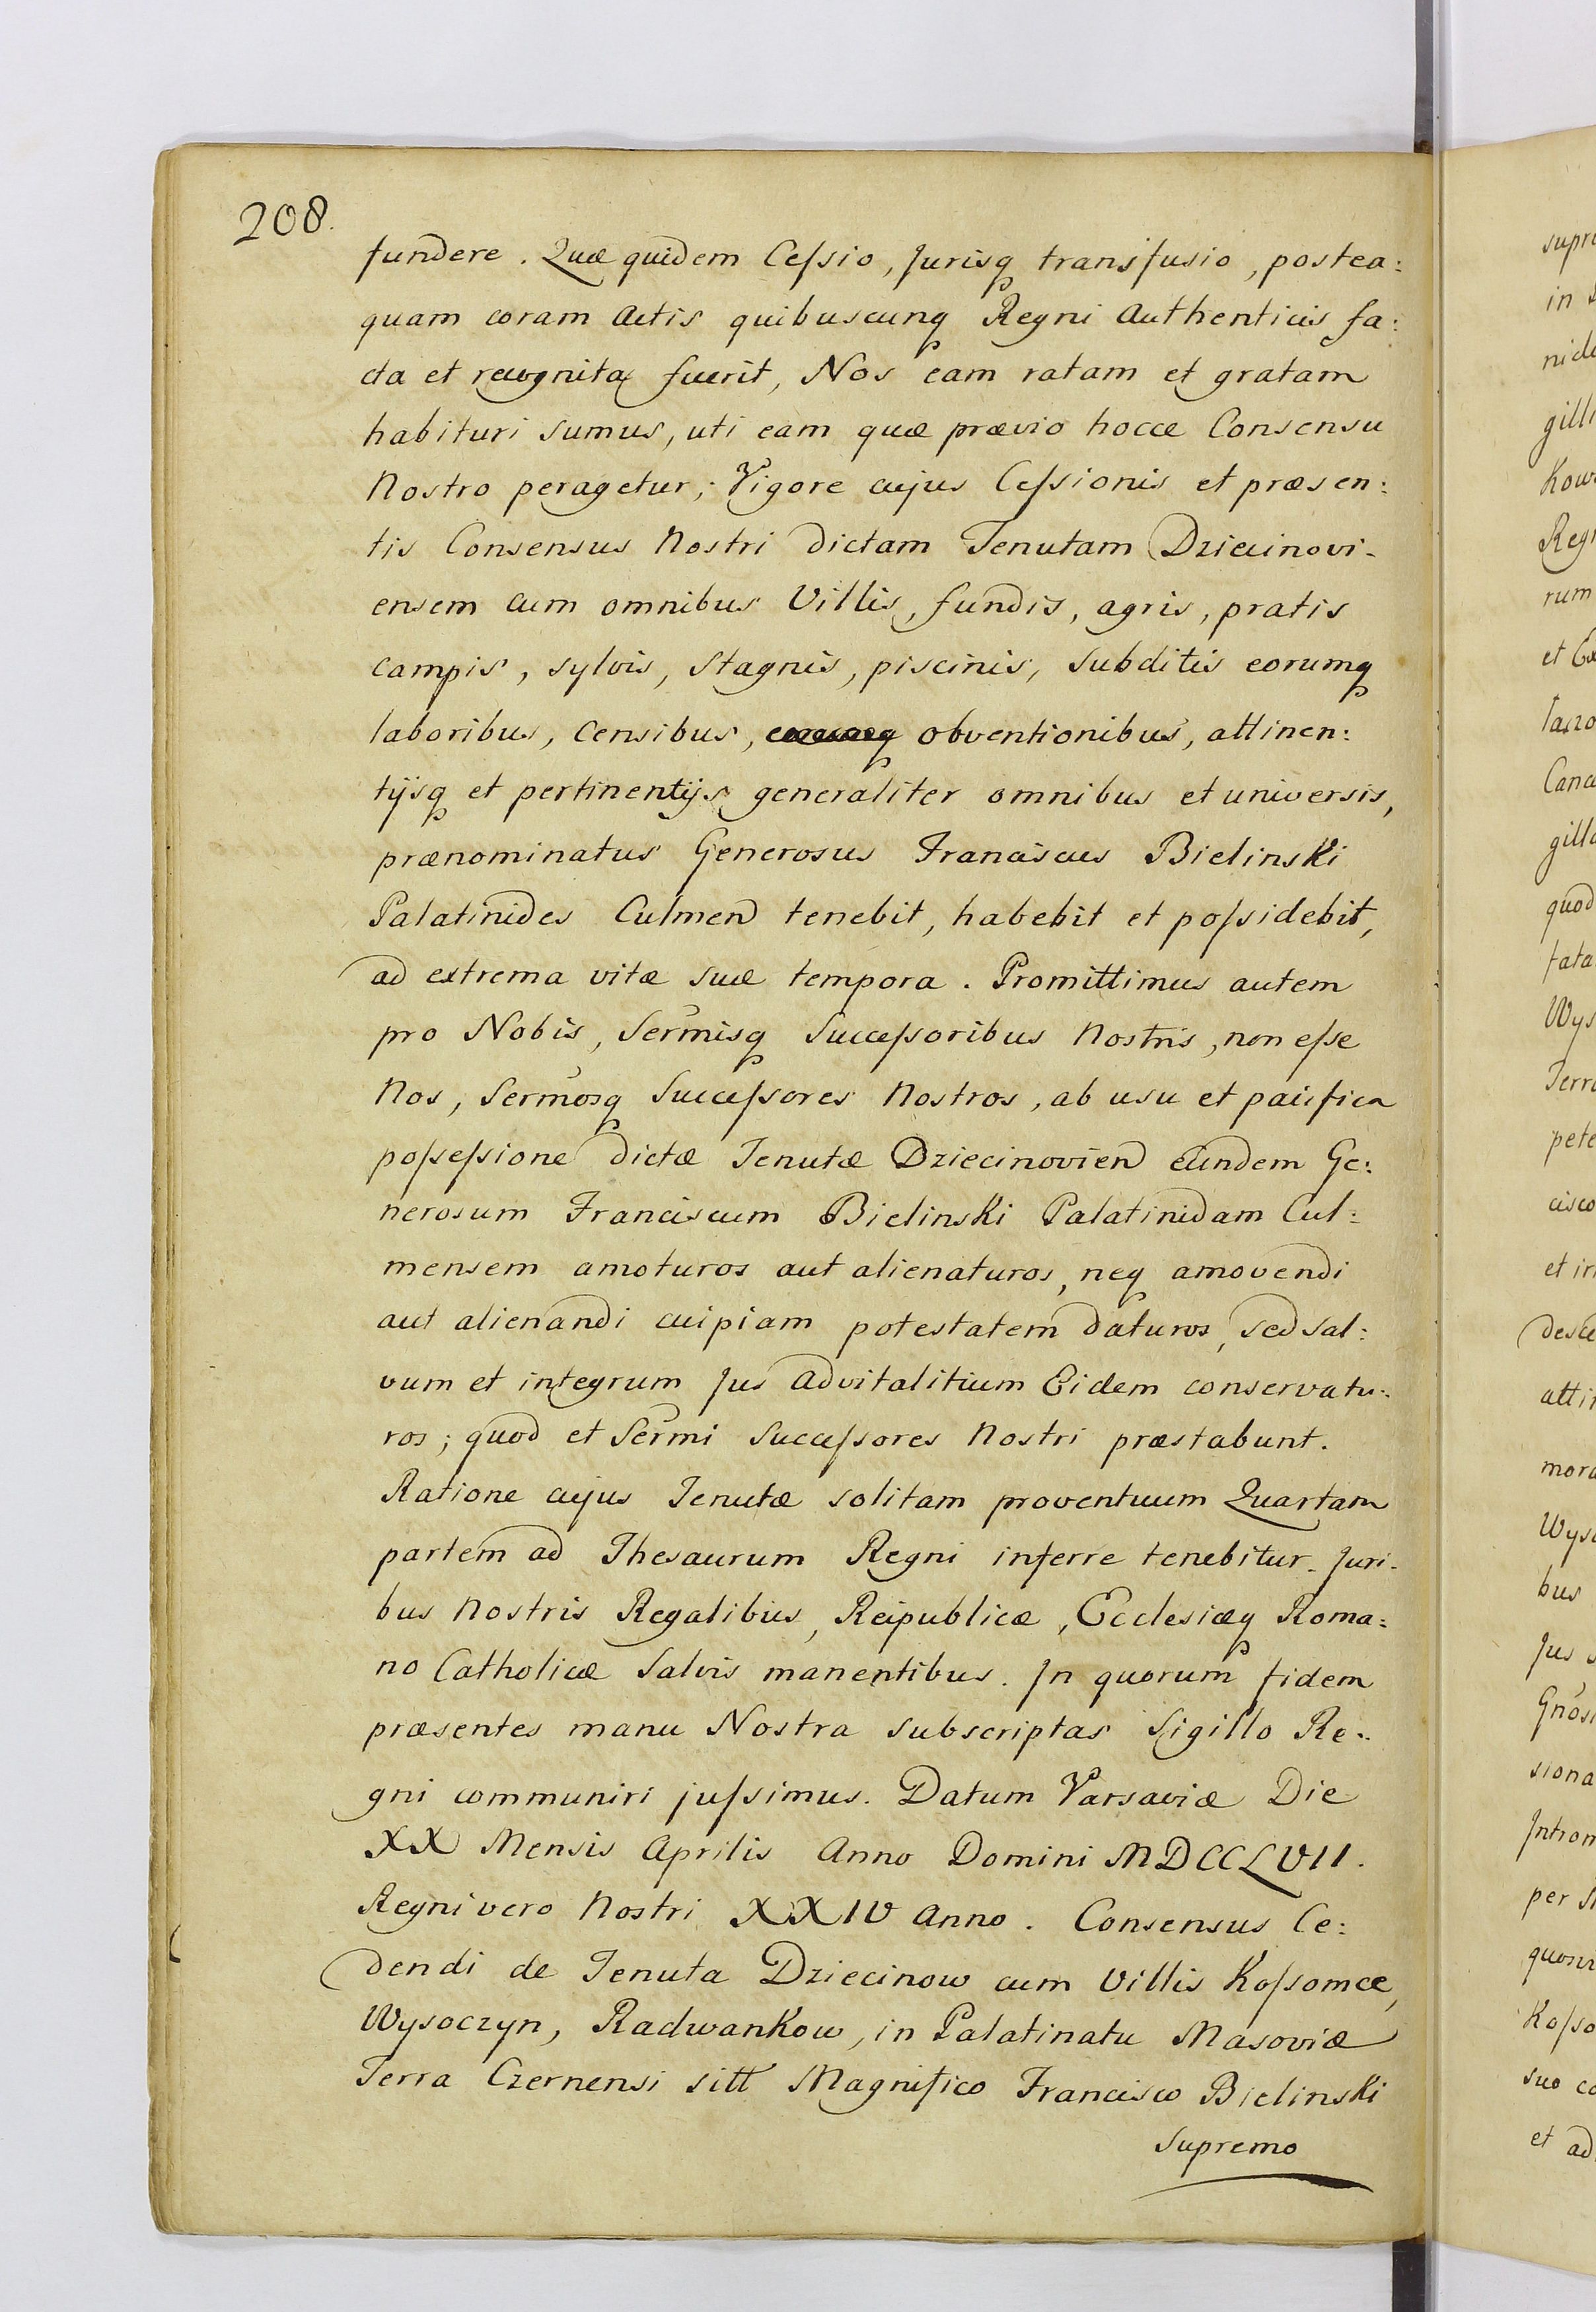 208.
fundere. Quæ quidem Ceſsio, Jurisq transfusio, postea:
quam coram Actis quibuscunq Regni Authenticis fa:
cta et recognita fuerit, Nos eam ratam et gratam
habituri sumus, uti eam quæ prævio hocce Consensu
Nostro peragetur; Vigore cujus Ceſsionis et præsen:
tis Consensus Nostri dictam Tenutam Dziecinovi-
ensem cum omnibus Villis, fundis, agris, pratis
campis, sylvis, stagnis, piscinis, subditis eorumq
laboribus, censibus, obventionibus, attinen:
tijsq et pertinentijs generaliter omnibus et universis,
prænominatus Generosus Franciscus Bielinski
Palatinides Culmen tenebit, habebit et poſsidebit,
ad extrema vitæ suæ tempora. Promittimus autem
pro Nobis, Sermisq Succeſsoribus Nostris, non eſse
Nos, Sermosq Succeſsores Nostros, ab usu et pacifica
poſseſsione dictæ Tenutæ Dziecinovien eundem Ge:
nerosum Franciscum Bielinski Palatinidam Cul:
mensem amoturos aut alienaturos, neq amovendi
aut alienandi cuipiam potestatem daturos, sed sal:
vum et integrum Jus advitalitium Eidem conservatu:
ros; quod et Sermi Succeſsores Nostri præstabunt.
Ratione cujus Tenutæ solitam proventuum Quartam
partem ad Thesaurum Regni inferre tenebitur. Juri-
bus Nostris Regalibus, Reipublicæ, Ecclesiæq Roma:
no Catholicæ salvis manentibus. In quorum fidem
præsentes manu Nostra subscriptas Sigillo Re:
gni communiri juſsimus. Datum Varsaviæ Die
XX Mensis Aprilis Anno Domini MDCCLVII.
Regni vero Nostri XXIV Anno. Consensus Ce:
dendi de Tenuta Dziecinow cum Villis Koſsomce,
Wysoczyn, Radwankow, in Palatinatu Masoviæ
Terra Czernensi sitt Magnifico Francisco Bielinski
Supremo